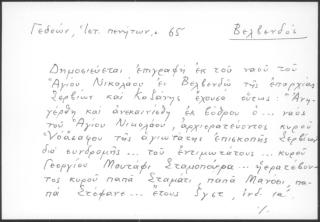 Γεδεών, Ἱστ. πενήτων, 65 Βελβενδός
Δημοσιεύεται ἐπιγραφὴ ἐκ τοῦ ναοῦ τοῦ
Ἁγίου Νικολάου ἐν Βελβενδῷ τῆς ἐπαρχίας
Σερβίων καὶ Κοζάνης ἔχουσα οὕτως: "Ἀνη-
γέρθη καὶ ἀνεκαινίσθη ἐκ βάθρου ὁ... ναὸς
τοῦ Ἁγίου Νικολάου, ἀρχιερατεύοντος κυροῦ
τῆς ἁγιωτάτης ἐπισκοπῆς Σερβίων
διὰ συνδρομῆς ... τοῦ ἐντιμωτάτου ... κυροῦ
Γεωργίου Μουτάφι Σταμοπούρα ... ἱερατεύον-
τος κυροῦ παπᾶ Σταμάτι παπᾶ Μάνου, πα-
πᾶ Στέφανε ... ἔτους ἰνδ. ια΄
./.